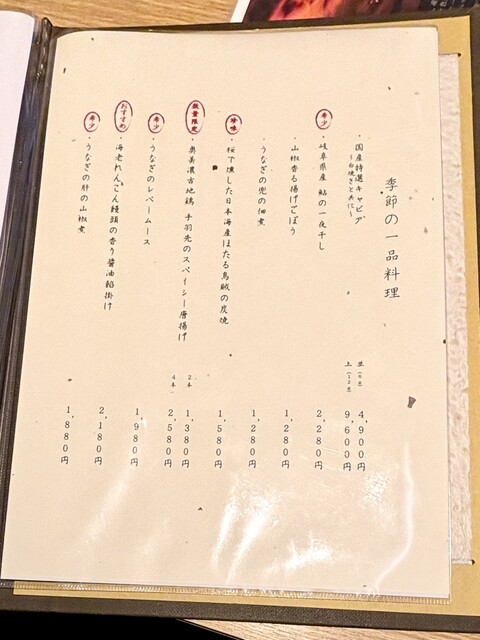 季節の一品料理
・国産特選キャビア
～白焼きと共に～
並(6g) 4,900円
上(12g) 9,600円
希少
・岐阜県産 鮎の一夜干し 2,280円
・山椒香る揚げごぼう 1,280円
・うなぎの兜の佃煮 1,280円
珍味
・桜で燻した日本海産ほたる烏賊の炭焼 1,580円
数量限定
・奥美濃古地鶏 手羽先のスパイシー唐揚げ
2本 1,380円
4本 2,580円
希少
・うなぎのレバームース 1,980円
おすすめ
・海老れんこん饅頭の香り醤油餡掛け 2,180円
希少
・うなぎの肝の山椒煮 1,880円